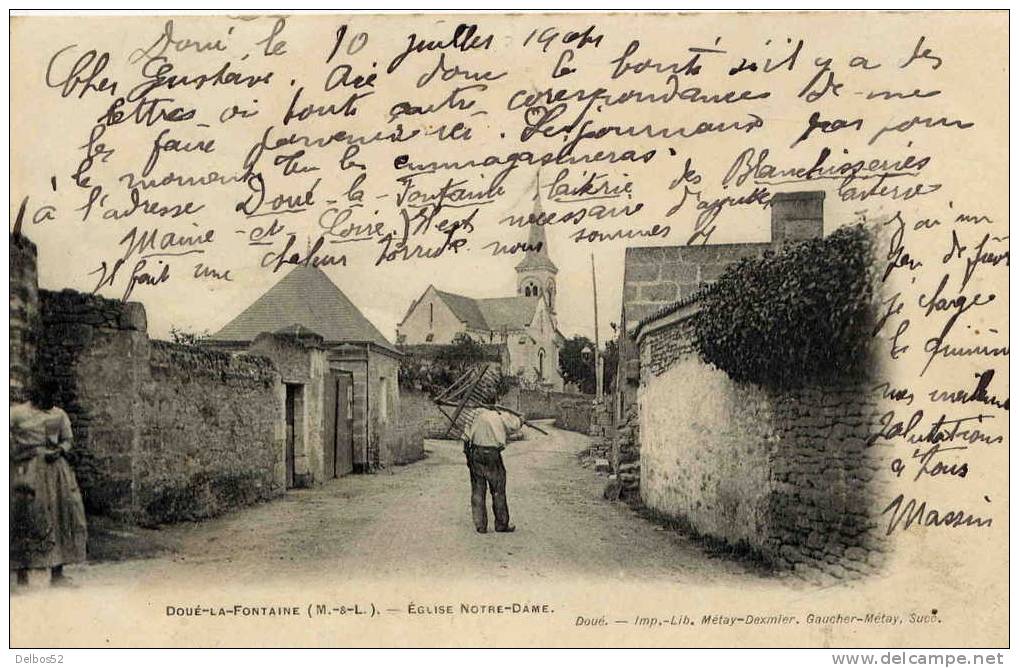 Doué le 10 juillet
Cher Gustave. Aie donc la bonté s'il y a des
lettres ou toute autre correspondances de me
les faire parvenir ici. Les journaux pas pour
le moment Tu les emmagasineras.
à l'adresse Doué-la-Fontaine laiterie des Blanchisseries
Maine-et-Loire. nécessaire
Il fait une chaleur torride nous sommes
J'ai un
peu de fièvre
je charge
la
nos meilleures
salutations
à tous
Massin
DOUÉ-LA-FONTAINE (M.-&-L.). — ÉGLISE NOTRE-DAME.
Doué. — Imp.-Lib. Métay-Dexmier. Gaucher-Métay, Succ.
Delbos52
http://www.delcampe.net